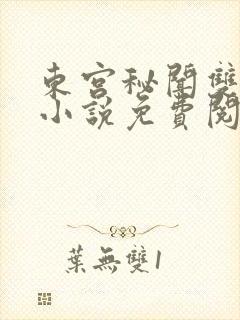 東宮秘聞雙
小說免費閱
葉無雙1